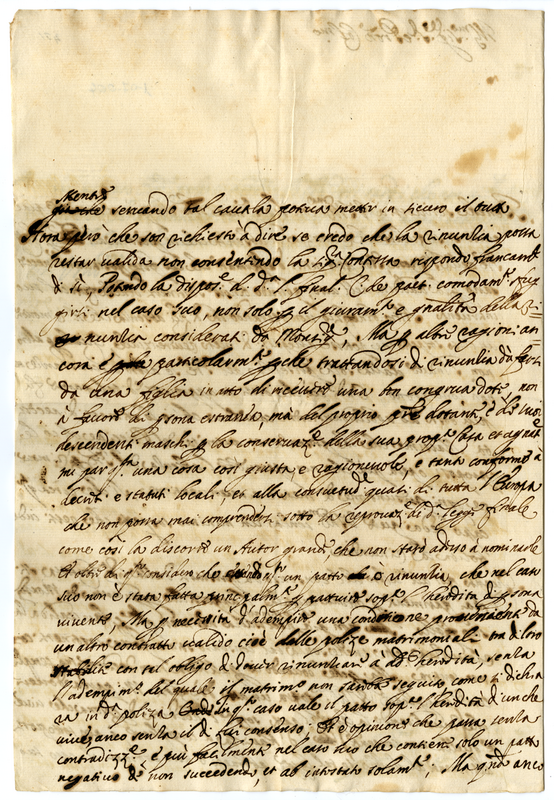 servando tal cautela potria metter in sicuro il tutto
Hora però che son richiesto à dire se credo che la rinuntia possa
restar valida non consentendo la Sra Contessa rispondo francamte
di sì, Potendo la dispose di da l. final. C. de pact. comodamte sfug
girsi nel caso suo, non solo p il giuramto e qualità della ri
nuntia considerati da Monsre, Ma p altre ragioni an
cora e particolarmte pche trattandosi di rinuntia da farsi
da una figlia in atto di ricevere una ben congrua dote non
à favore di psona estranea, mà del proprio pre dotante, e de suoi
descendenti maschi p la conservaze della sua propa Casa et agnate
mi par sta una cosa così giusta, e ragionevole, e tanto conforme à
decreti e statuti locali et alla consuetude quasi di tutta l'Europa
che non possa mai comprendersi sotto la reprovaze di da legge finale
come così la discorre un Autor grande che non starò adesso à nominarle
Et oltre di qto considero che un patto e rinuntia, che nel caso
suo non è stata fatta principalmte p pattuire sopa l'heredità di psona
vivente, Ma p necessità d'adempire una condizione proveniente da
un altro contratto valido cioè delle polize matrimoniali tra di loro
stabilite con tal obligo di dover rinuntiare à da heredità, senza
l'adempimto del quale il matrimo non sarebbe seguito come si dichia
ra in da poliza In qto caso vale il patto sopa l'heredità d'un che
vive anco senza il di lui consenso. Et è opinione che passa senza
contradizze, e più facilmente nel caso suo che contiene solo un patto
negativo de non succedendo, et ab intestato solamte; Ma qndo anco